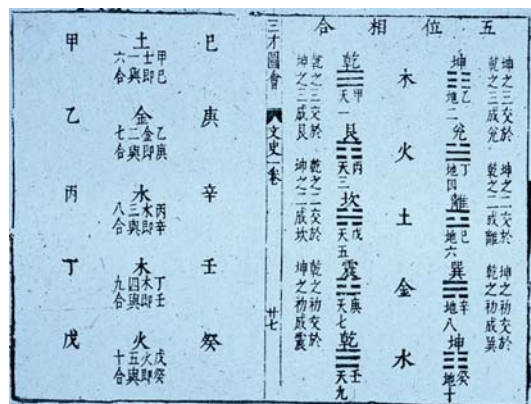 五位相合
坤之三交於
乾之三成兌
坤之二交於
乾之二成離
坤之初交於
乾之初成巽
坤乙地二
兌丁地四
離巳地六
巽辛地八
坤癸地十
木火土金水
乾甲天一
艮丙天三
坎戊天五
震庚天七
乾壬天九
乾之三交於
坤之三成艮
乾之二交於
坤之二成坎
乾之初交於
坤之初成震
三才圖會 文史一卷 廿七
巳庚辛壬癸
土 甲巳土即一與六合
金 乙庚金即二與七合
水 丙辛水即三與八合
木 丁壬木即四與九合
火 戊癸火即五與十合
甲乙丙丁戊